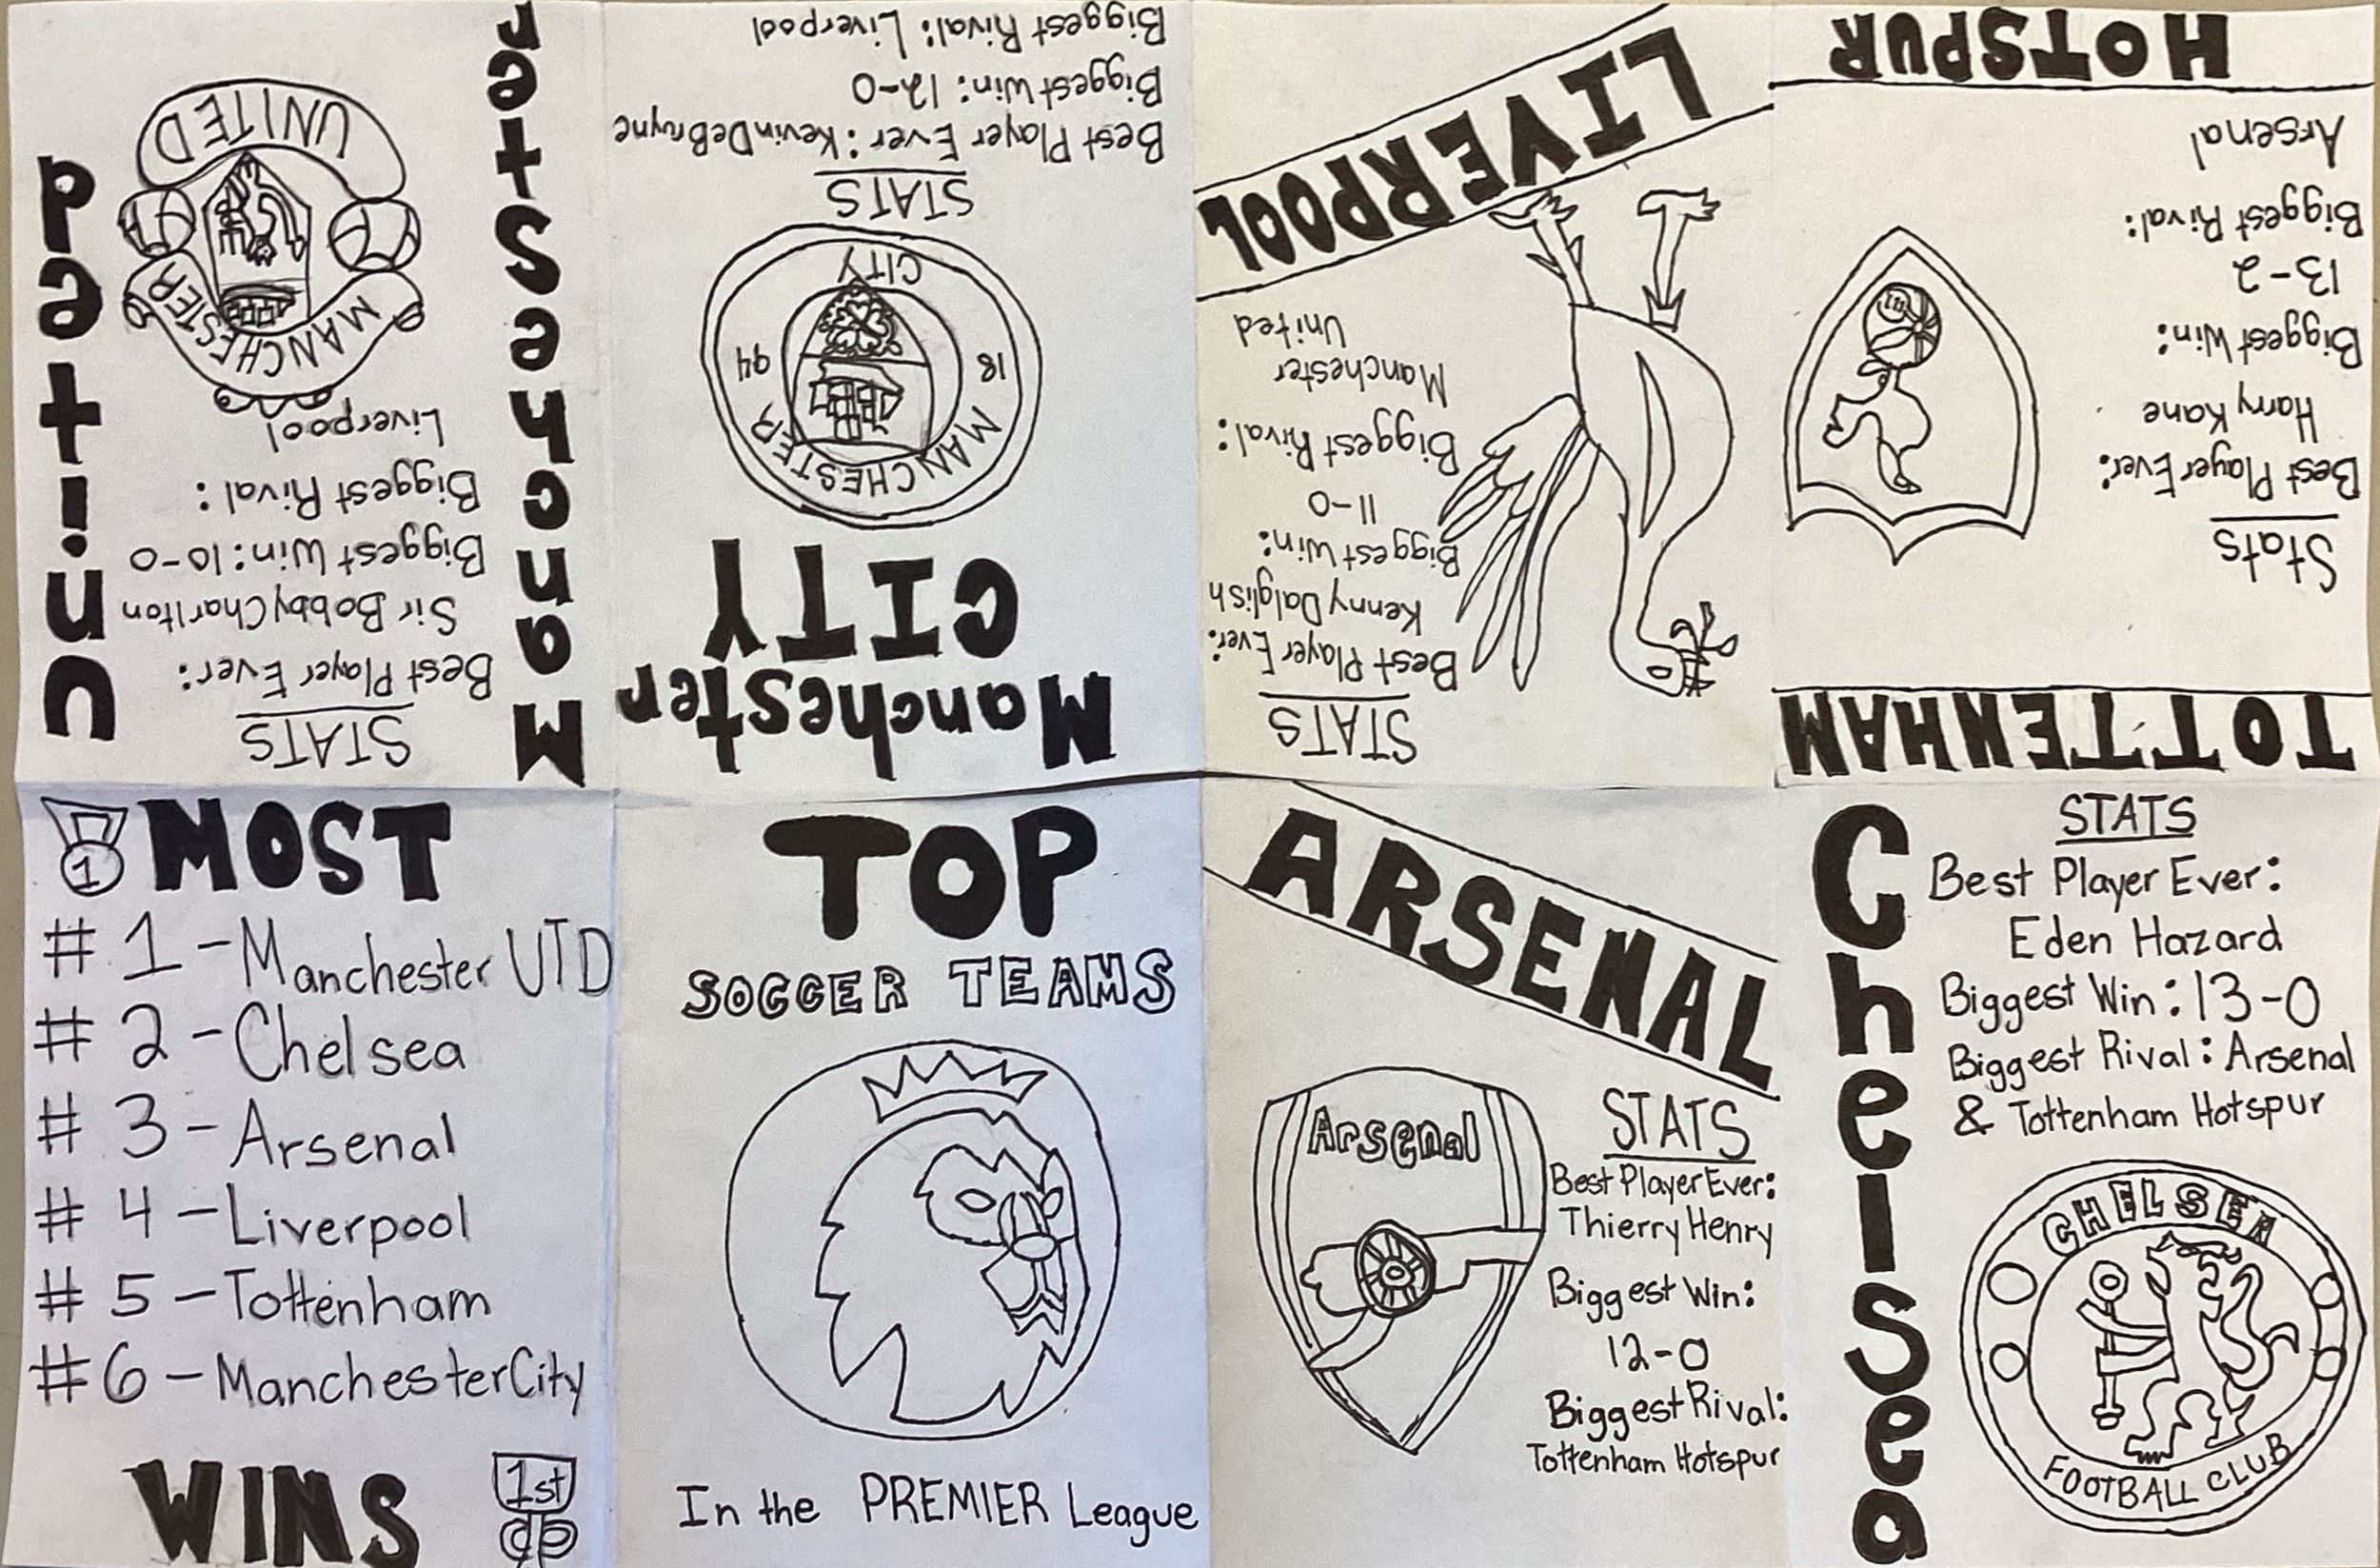 TOP
SOCCER TEAMS
In the PREMIER League
ARSENAL
Arsenal
STATS
Best Player Ever:
Thierry Henry
Biggest Win:
12-0
Biggest Rival:
Tottenham Hotspur
Chelsea
STATS
Best Player Ever:
Eden Hazard
Biggest Win: 13-0
Biggest Rival: Arsenal
& Tottenham Hotspur
CHELSEA
FOOTBALL CLUB
TOTTENHAM
Stats
Best Player Ever:
Harry Kane
Biggest Win:
13-2
Biggest Rival:
Arsenal
HOTSPUR
STATS
Best Player Ever:
Kenny Dalglish
Biggest Win:
11-0
Biggest Rival:
Manchester
United
LIVERPOOL
Manchester
CITY
MANCHESTER
18 94
CITY
STATS
Best Player Ever: Kevin DeBruyne
Biggest Win: 12-0
Biggest Rival: Liverpool
Manchester
United
STATS
Best Player Ever:
Sir Bobby Charlton
Biggest Win: 10-0
Biggest Rival:
Liverpool
MANCHESTER
UNITED
1
MOST
# 1 - Manchester UTD
# 2 - Chelsea
# 3 - Arsenal
# 4 - Liverpool
# 5 - Tottenham
# 6 - Manchester City
WINS
1st